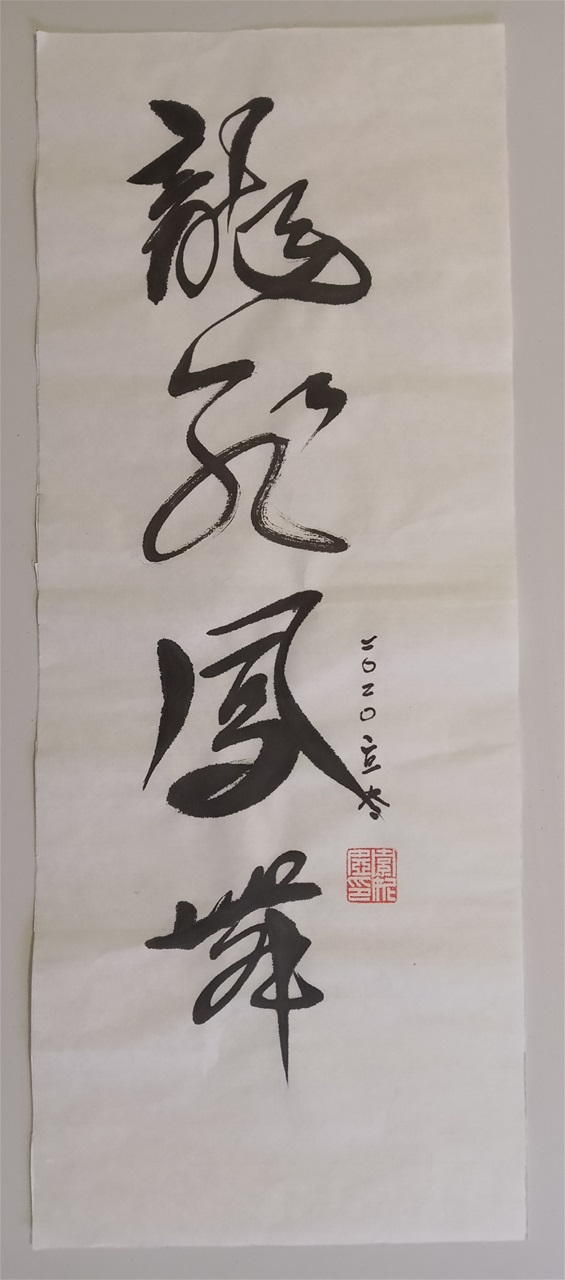 龍飛鳳舞
二〇二〇立春